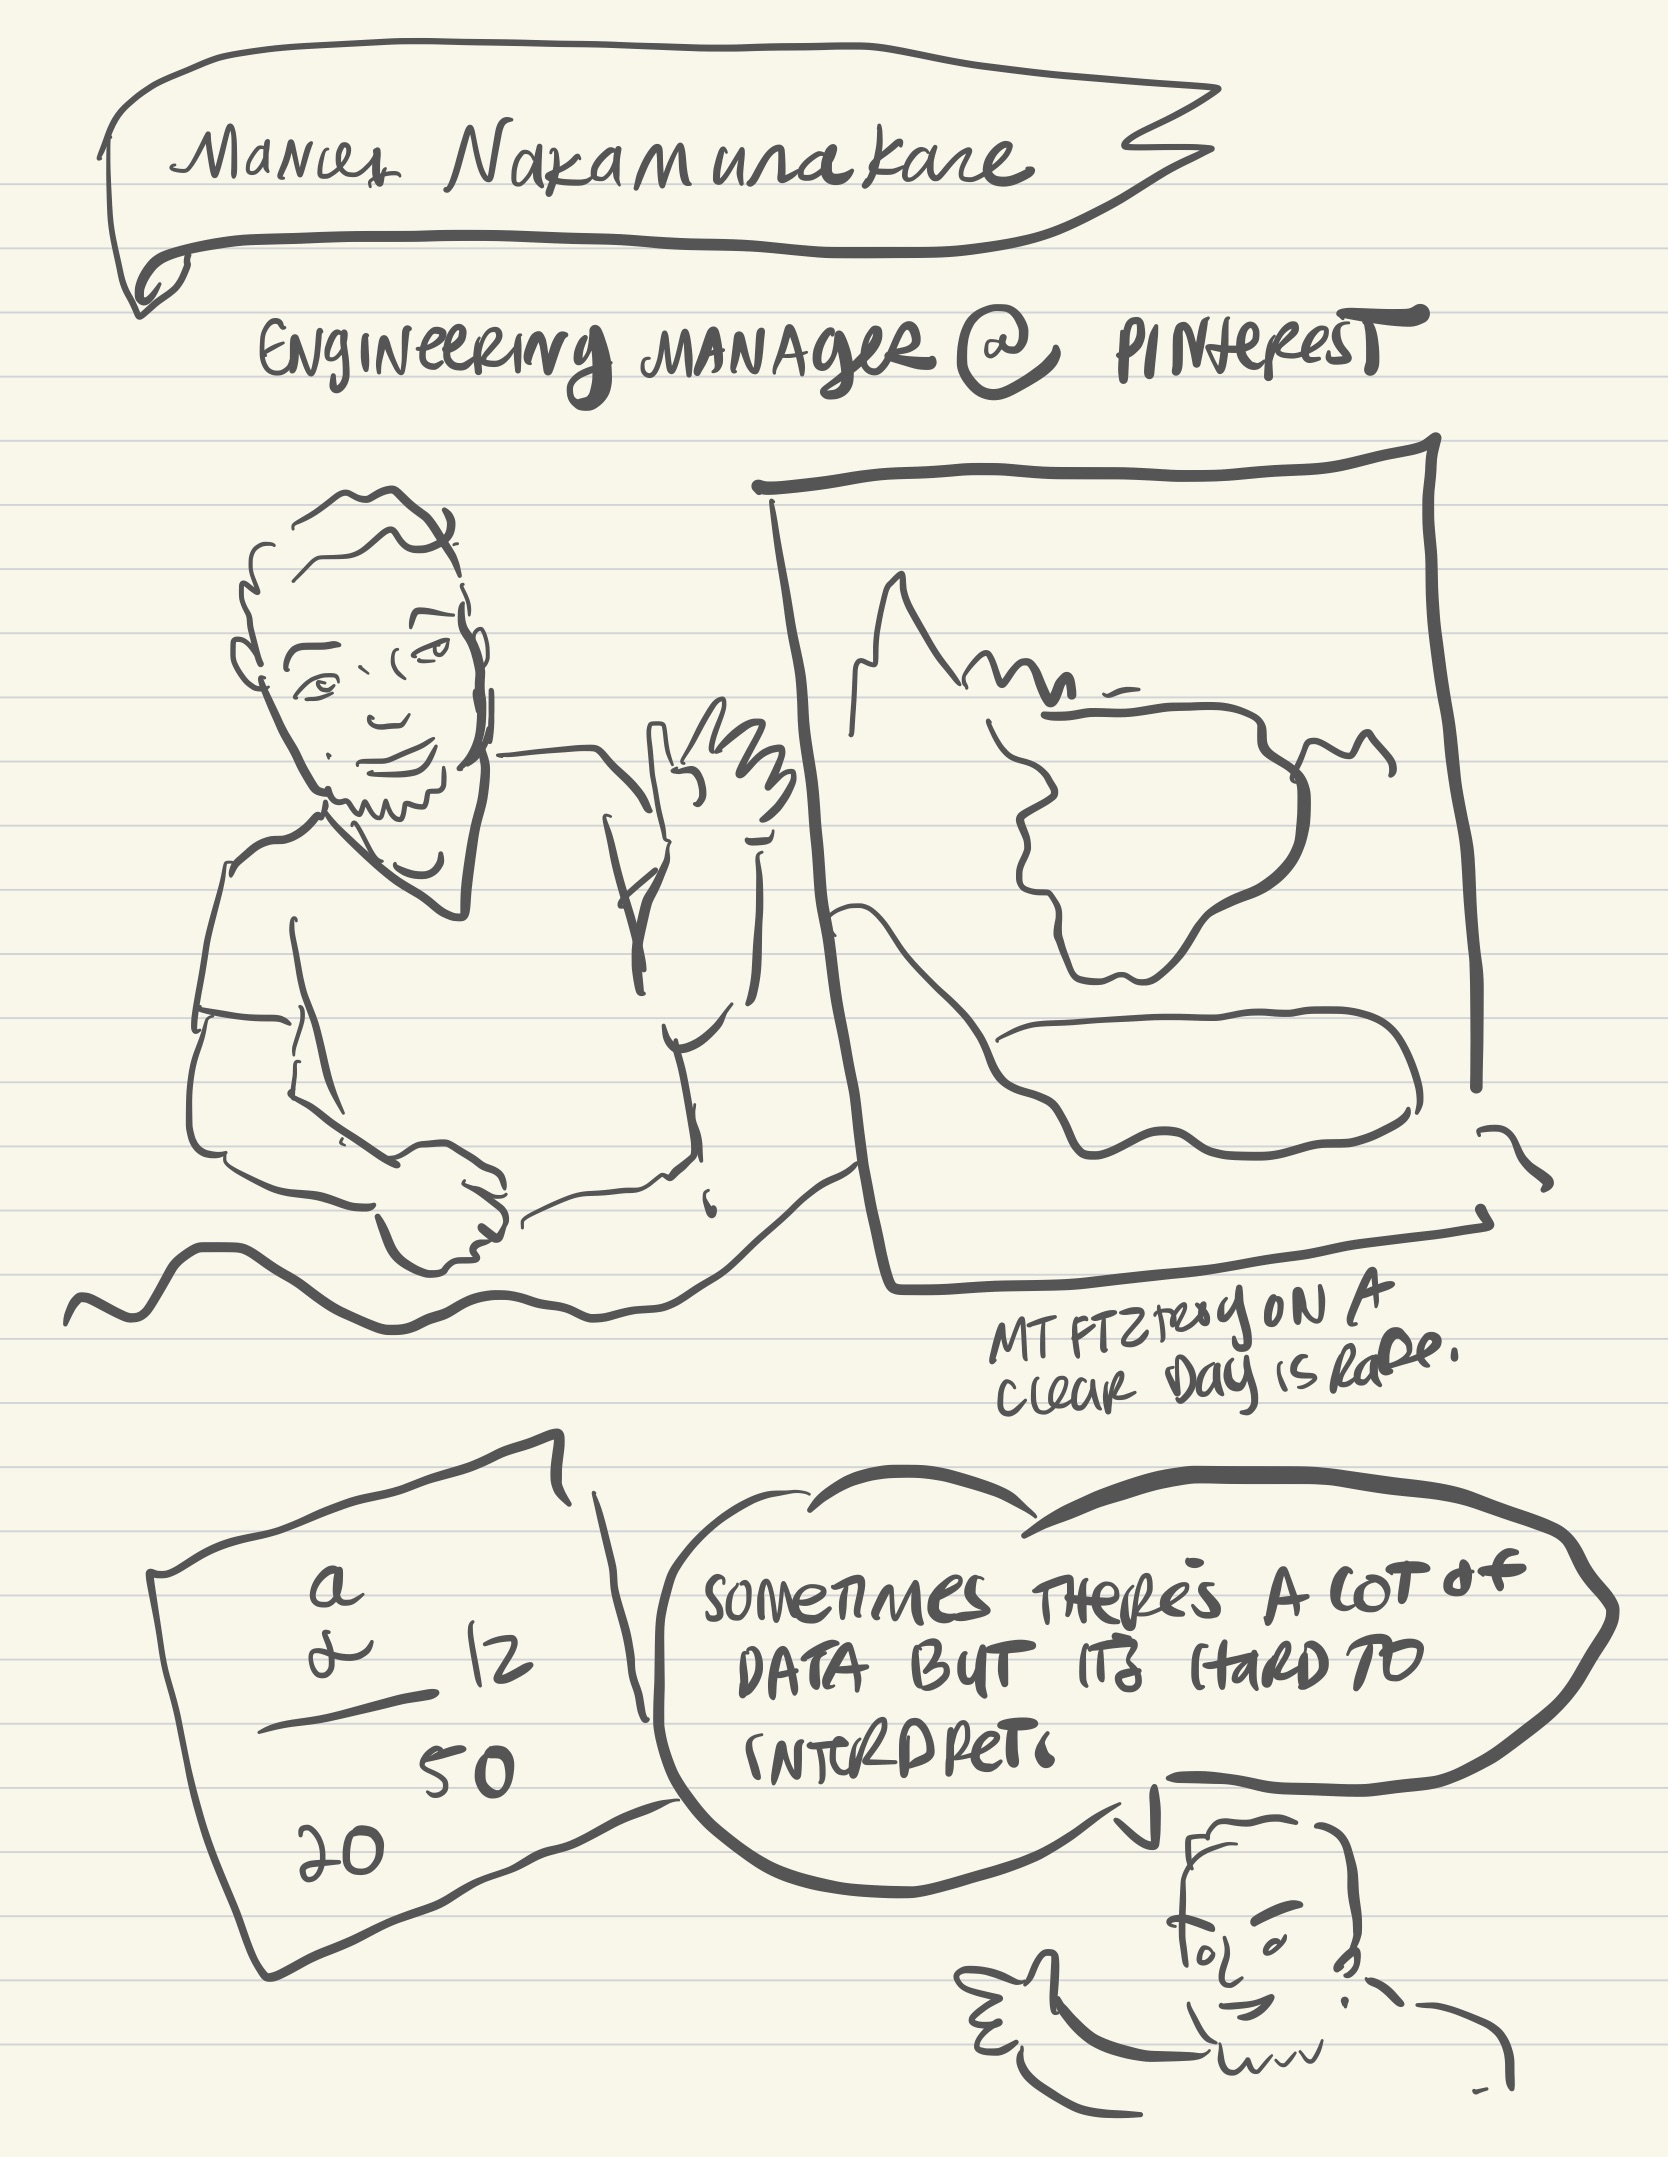 Nakamurakare
ENGINEERING MANAGER @ PINTEREST
MT FITZROY ON A
CLEAR DAY IS RARE.
a
a 12
50
20
SOMETIMES THERE'S A LOT OF
DATA BUT IT'S HARD TO
INTERPRET.